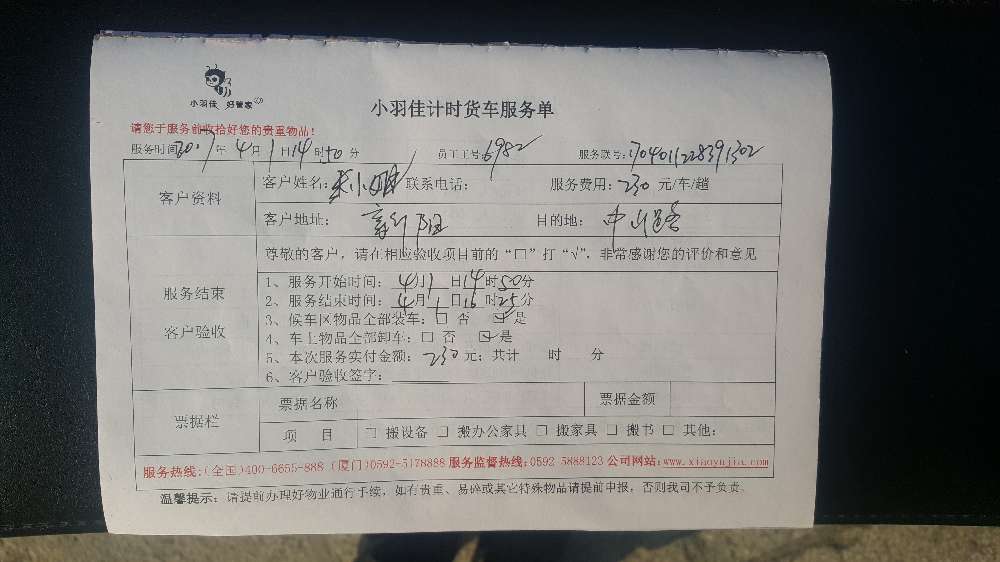 小羽佳 好管家
小羽佳计时货车服务单
请您于服务前收拾好您的贵重物品！
服务时间：2017年4月1日14时50分 员工工号：6982 服务联号：1704011228391302
客户资料
客户姓名：小姐 联系电话： 服务费用：230 元/车/趟
客户地址： 目的地：中山路
尊敬的客户，请在相应验收项目前的“口”打“√”，非常感谢您的评价和意见
服务结束
客户验收
1、服务开始时间：4月1日14时50分
2、服务结束时间：4月1日16时25分
3、候车区物品全部装车：□ 否 ☑ 是
4、车上物品全部卸车：□ 否 ☑ 是
5、本次服务实付金额：230 元；共计 时 分
6、客户验收签字：
票据栏
票据名称 票据金额
项 目 □ 搬设备 □ 搬办公家具 □ 搬家具 □ 搬书 □ 其他：
服务热线：(全国)400-6655-888 (厦门)0592-5178888 服务监督热线：0592-5888123 公司网站：www.xiaoyujia.com
温馨提示：请提前办理好物业通行手续，如有贵重、易碎或其它特殊物品请提前申报，否则我司不予负责。